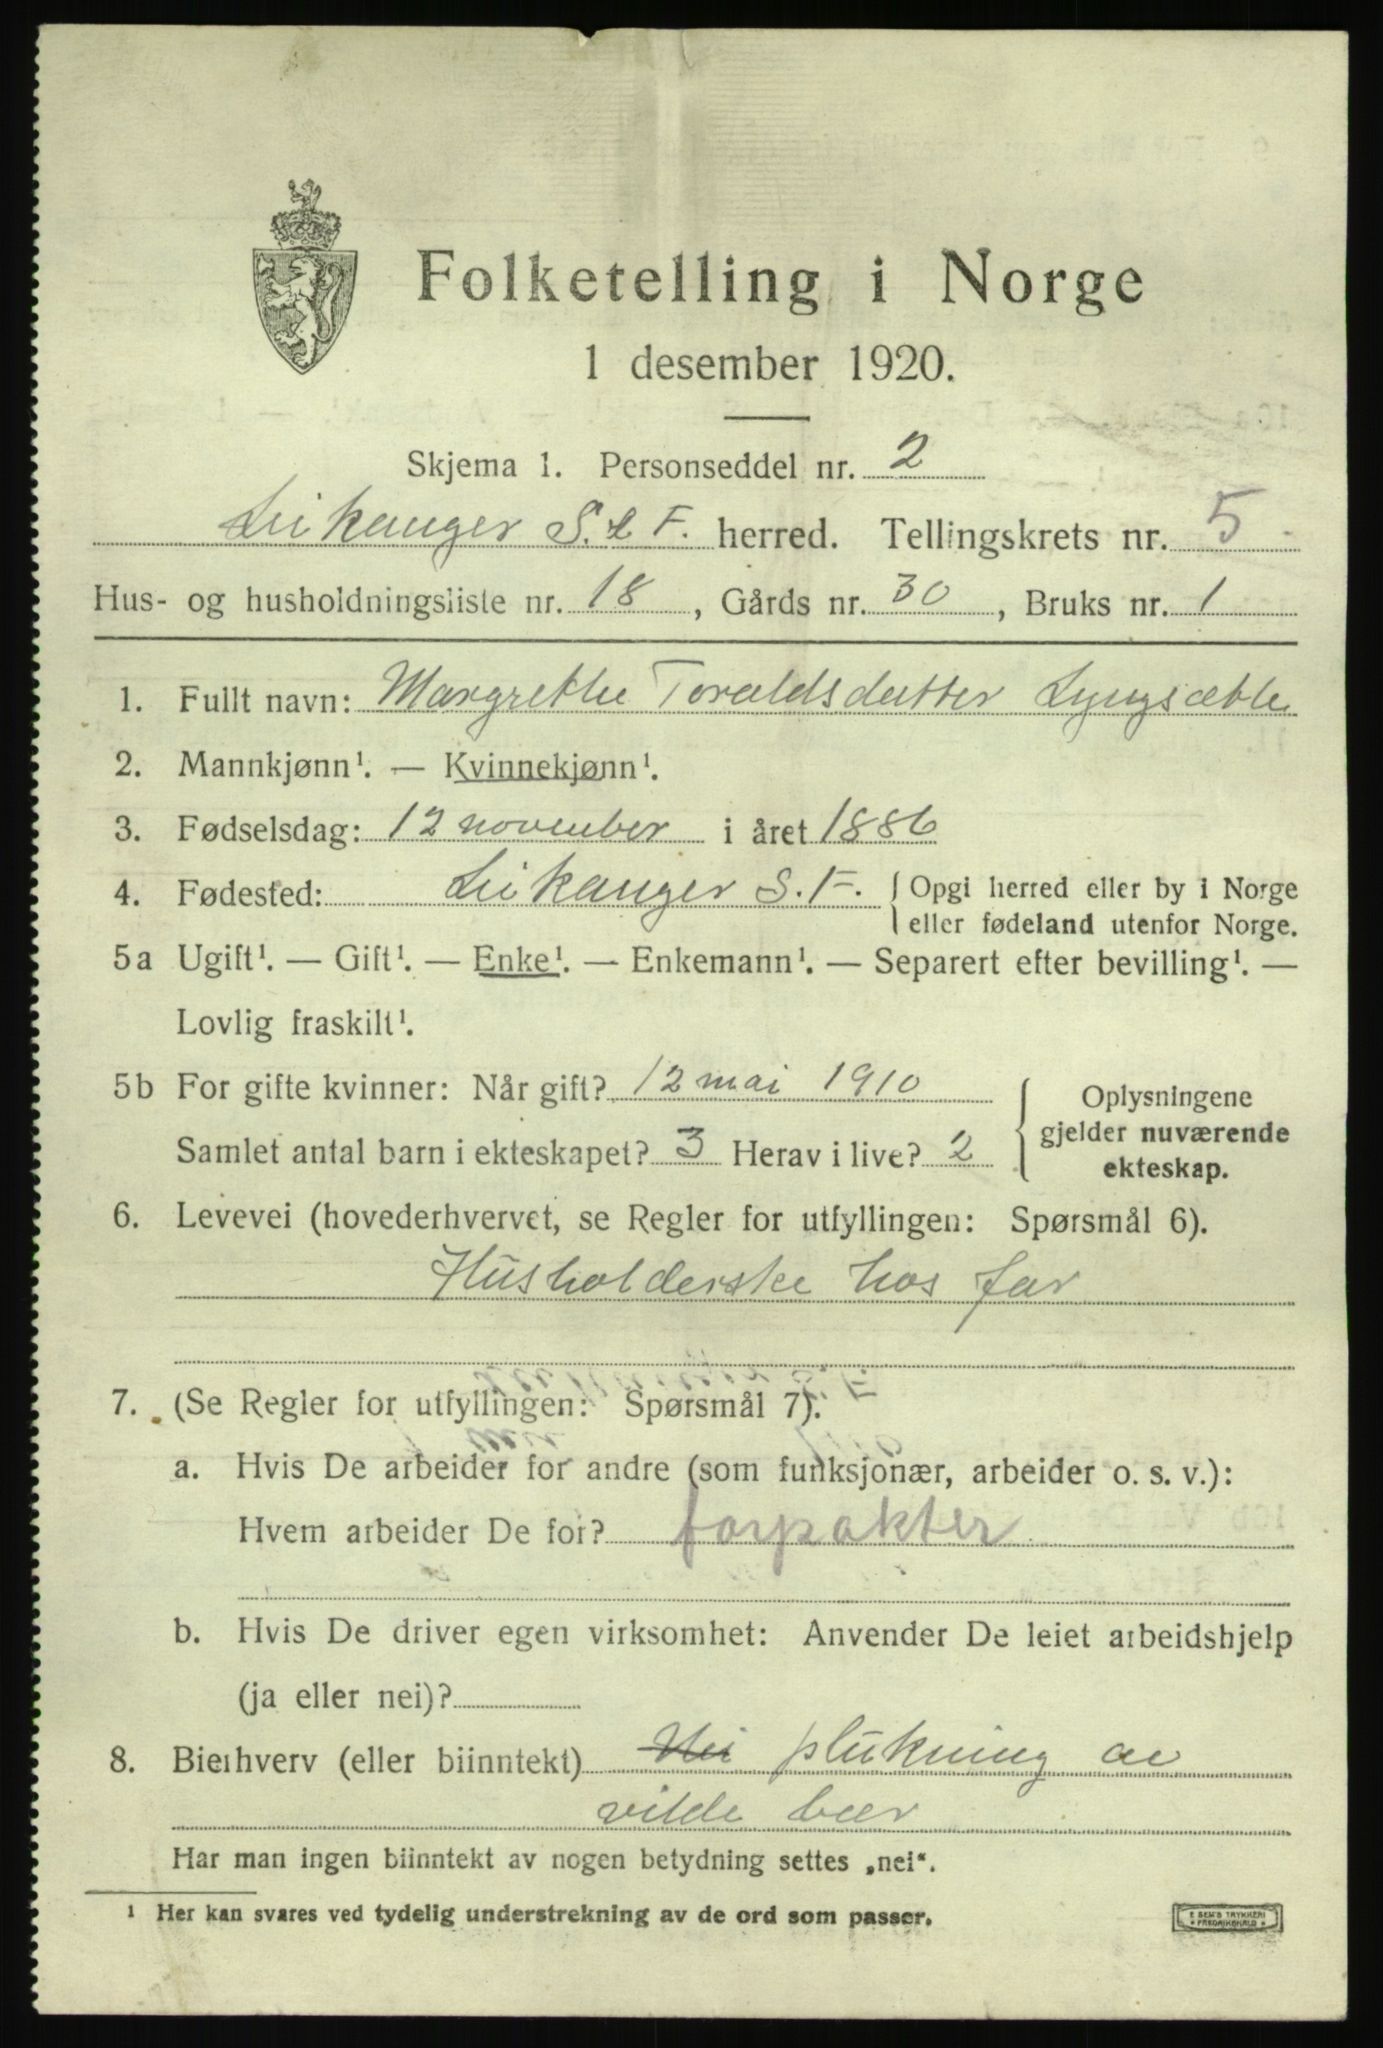 Folketelling i Norge
1 desember 1920.
Skjema 1. Personseddel nr. 2
Leikanger S. & F. herred. Tellingskrets nr. 5
Hus- og husholdningsliste nr. 18, Gårds nr. 30, Bruks nr. 1
1. Fullt navn: Margrethe Toraldsdatter Lyngsæble
2. Mannkjønn¹. — Kvinnekjønn¹.
3. Fødselsdag: 12 november i året 1886
4. Fødested: Leikanger S. F. { Opgi herred eller by i Norge
eller fødeland utenfor Norge.
5a Ugift¹. — Gift¹. — Enke¹. — Enkemann¹. — Separert efter bevilling¹. —
Lovlig fraskilt¹.
5b For gifte kvinner: Når gift? 12 mai 1910
Samlet antal barn i ekteskapet? 3 Herav i live? 2
Oplysningene
gjelder nuværende
ekteskap.
6. Levevei (hovederhvervet, se Regler for utfyllingen: Spørsmål 6).
Husholderske hos far
7. (Se Regler for utfyllingen: Spørsmål 7).
a. Hvis De arbeider for andre (som funksjonær, arbeider o. s. v.):
Hvem arbeider De for? forpakter
b. Hvis De driver egen virksomhet: Anvender De leiet arbeidshjelp
(ja eller nei)?
8. Bierhverv (eller biinntekt) Nei plukning av
vilde bær
Har man ingen biinntekt av nogen betydning settes „nei“.
¹ Her kan svares ved tydelig understrekning av de ord som passer.
E SEM'S TRYKKERI
FREDRIKSHALD